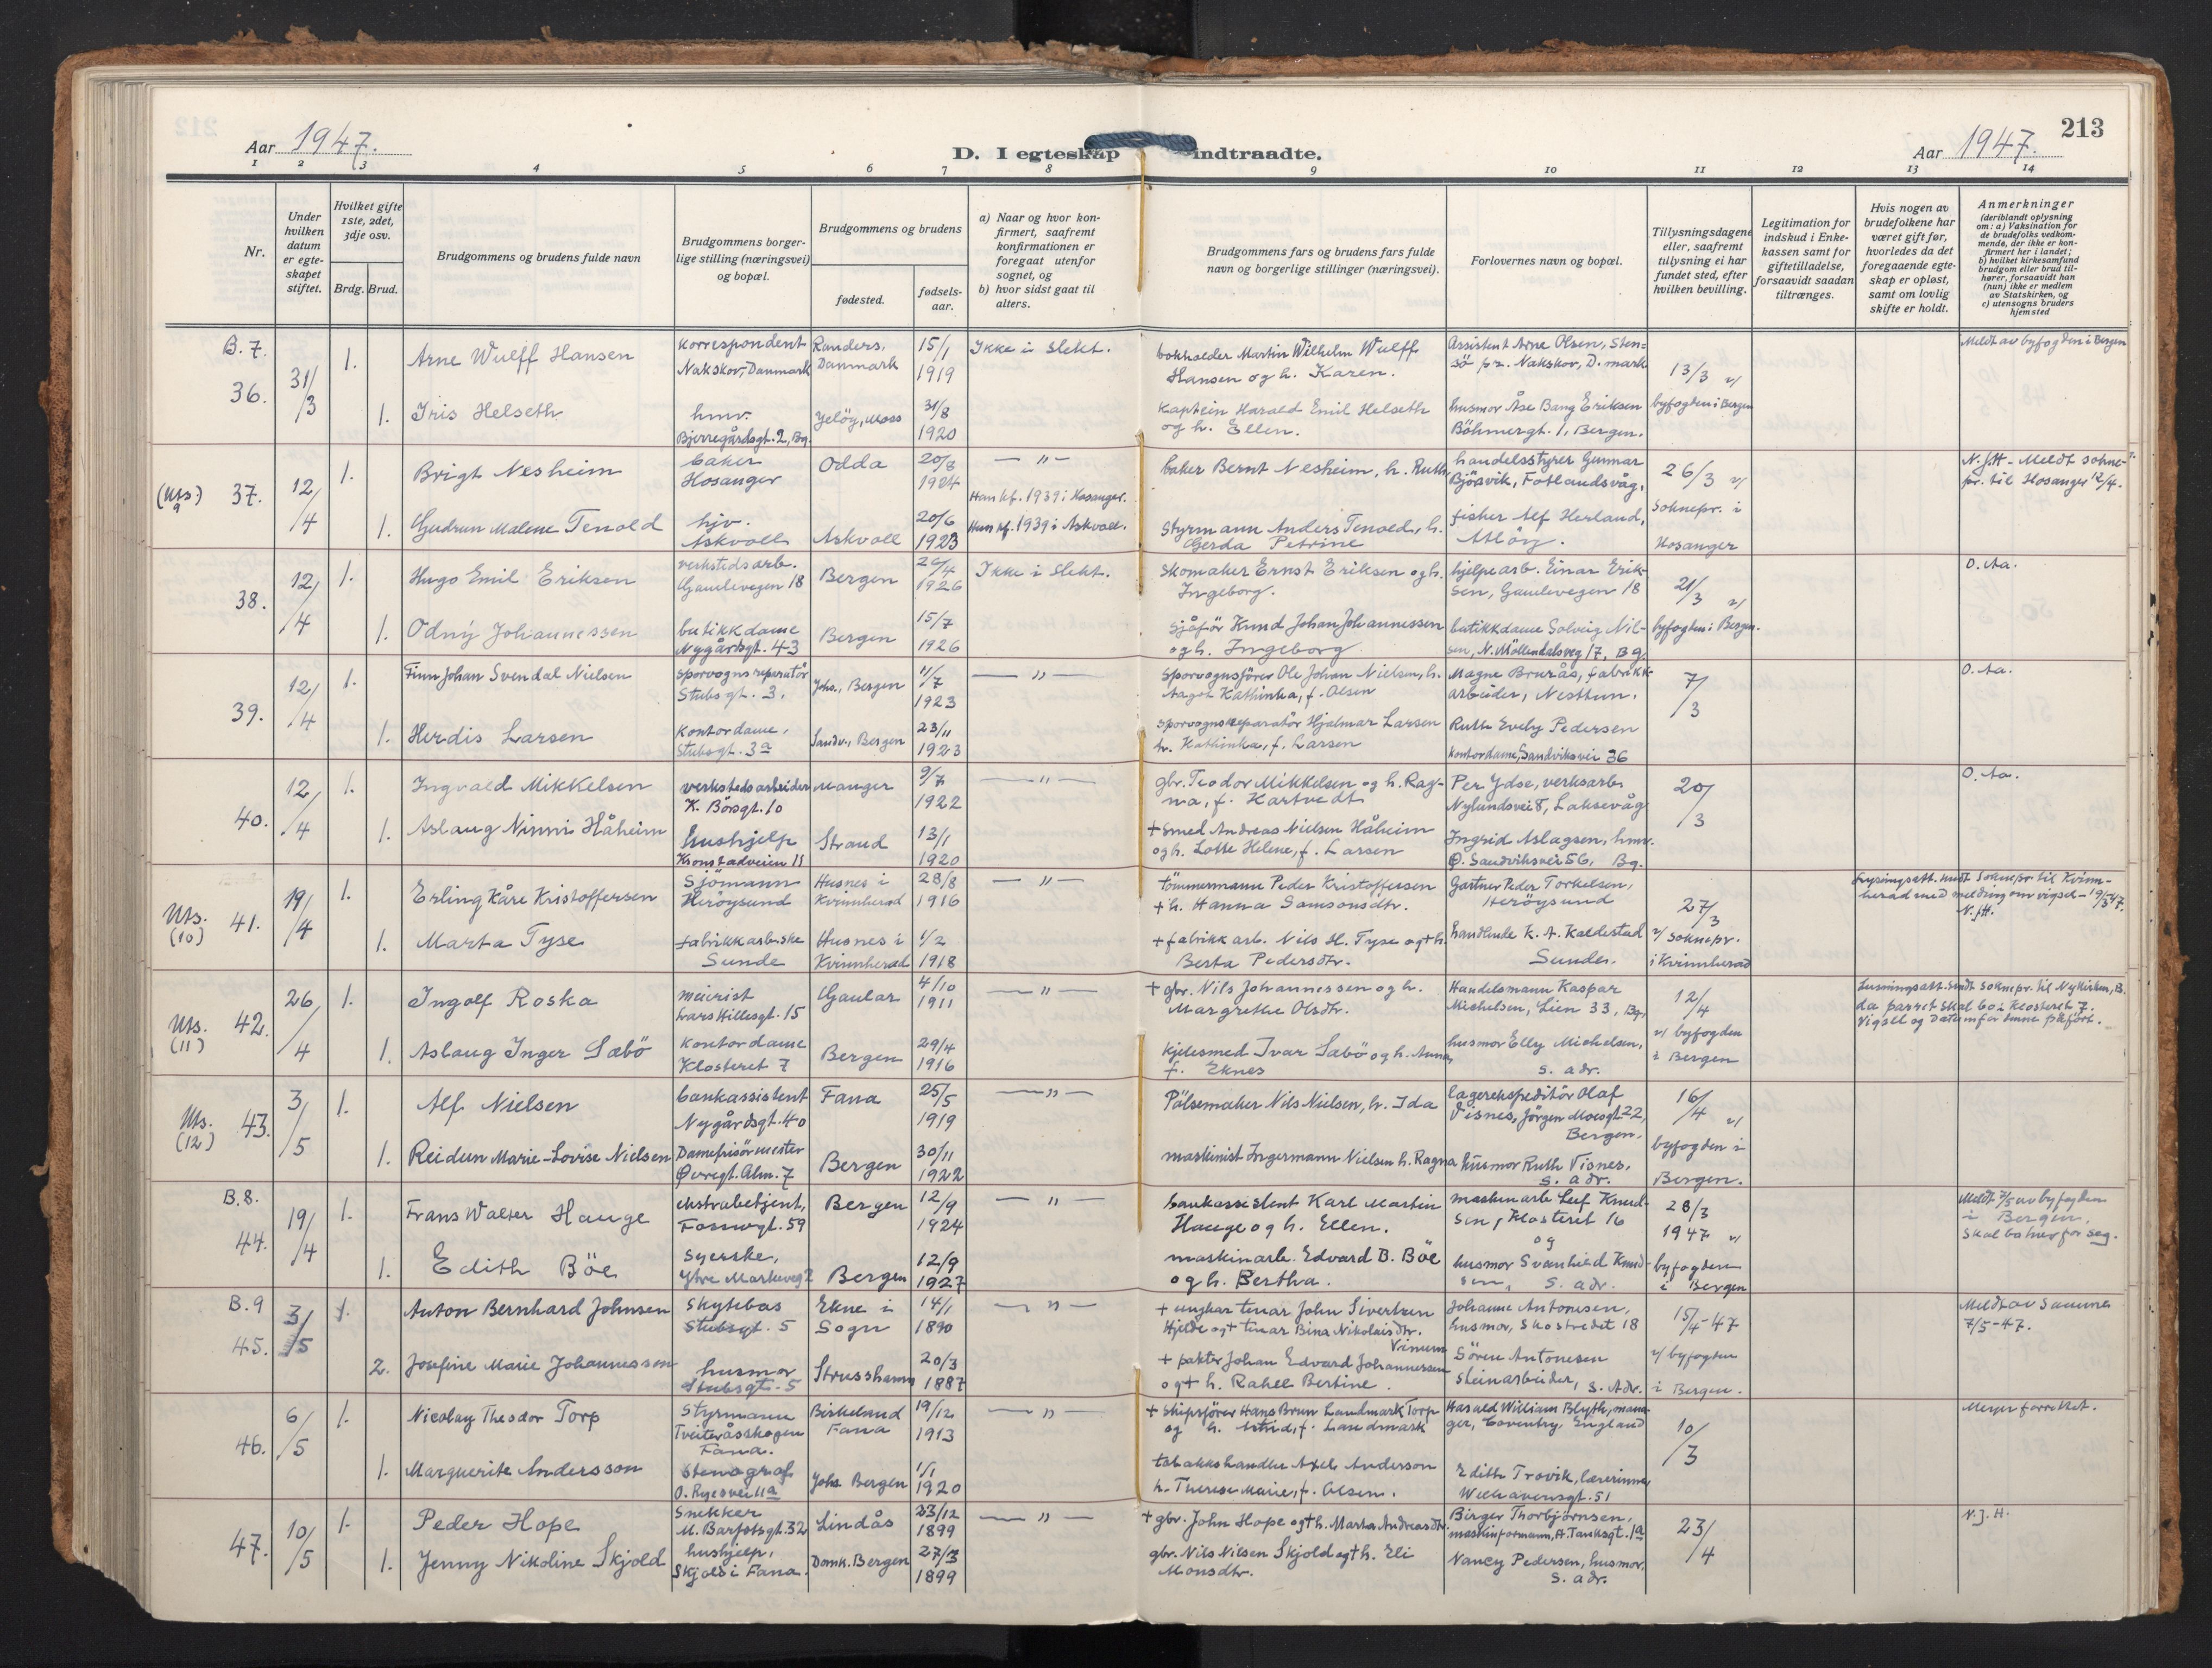 Aar 1947.
D. I egteskap indtraadte.
Aar 1947.
213
1 2 3 4 5 6 7 8 9 10 11 12 13 14
Nr.
Under hvilken datum er egteskapet stiftet.
Hvilket gifte 1ste, 2det, 3dje osv.
Brdg. Brud.
Brudgommens og brudens fulde navn
Brudgommens borgerlige stilling (næringsvei) og bopæl.
Brudgommens og brudens
fødested.
fødselsaar.
a) Naar og hvor konfirmert, saafremt konfirmationen er foregaat utenfor sognet, og
b) hvor sidst gaat til alters.
Brudgommens fars og brudens fars fulde navn og borgerlige stillinger (næringsvei).
Forlovernes navn og bopæl.
Tillysningsdagene eller, saafremt tillysning ei har fundet sted, efter hvilken bevilling.
Legitimation for indskud i Enkekassen samt for giftetilladelse, forsaavidt saadan tiltrænges.
Hvis nogen av brudefolkene har været gift før, hvorledes da det foregaaende egteskap er opløst, samt om lovlig skifte er holdt.
Anmerkninger
(deriblandt oplysning om: a) Vaksination for de brudefolks vedkommende, der ikke er konfirmert her i landet;
b) hvilket kirkesamfund brudgom eller brud tilhører, forsaavidt han (hun) ikke er medlem av Statskirken, og
c) utensogns bruders hjemsted
B. 7. 36. 31/3 1. Arne Wulff Hansen korrespondent Nakskov, Danmark Randers, Danmark 15/1 1919 Ikke i slekt. bokholder Martin Wilhelm Wulff Hansen og h. Karen. Assistent Arne Olsen, Stensö pr. Nakskov, D.mark 13/3 v/ Meldt av byfogden i Bergen
1. Iris Helseth hmv. Bjerregårdsgt. 2, Bg. Jelöy, Moss 31/8 1920 Kaptein Harald Emil Helseth og h. Ellen. husmor Åse Bang Eriksen Böhmergt. 1, Bergen. byfogden i Bergen
(Uts. 9) 37. 12/4 1. Brigt Nesheim baker Hosanger Odda 20/8 1924 — " — Han kf. 1939 i Hosanger. baker Bernt Nesheim, h. Ruth handelsstyrer Gunnar Bjösvik, Fotlandsvåg. 26/3 v/ N.J.H - Meldt sokne-pr. til Hosanger 12/4.
1. Gudrun Malene Tenold hjv. Askvoll Askvoll 20/6 1923 Hun kf. 1939 i Askvoll. Styrmann Anders Tenold, h. Gerda Petrine fisher Alf Herland, Atlöy. soknepr. i Hosanger
38. 12/4 1. Hugo Emil Eriksen verkstedsarb. Gamlevegen 18 Bergen 26/4 1926 Ikke i slekt. Skomaker Ernst Eriksen og h. Ingeborg. hjelpearb. Einar Eriksen, Gamlevegen 18 21/3 v/ O. Aa.
1. Odny Johannessen butikkdame Nygårdsgt. 43 Bergen 15/7 1926 Sjåför Knud Johan Johannessen og h. Ingeborg butikkdame Solveig Nilsen, N. Möllendalsveg 17, Bg. byfogden i Bergen.
39. 12/4 1. Finn Johan Svendal Nielsen sporvognsreparatör Stubsgt. 3. Johs., Bergen 11/7 1923 — " — Sporvognsförer Ole Johan Nielsen, h. Aagot Kathinka, f. Olsen Magne Brurås, fabrikkarbeider, Nesttun. 7/3 O. Aa.
1. Herdis Larsen Kontordame, Stubsgt. 3a Sandv., Bergen 23/11 1923 sporvognsreparatör Hjalmar Larsen h. Kathinka, f. Larsen Ruth Eveby Pedersen kontordame, Sandviksvei 36
40. 12/4 1. Ingvald Mikkelsen verkstedsarbeider K. Börsgt. 10 Manger 9/7 1922 — " — gbr. Teodor Mikkelsen og h. Ragna, f. Kartvedt Per Ydse, verksarb. Nylundsvei 8, Laksevåg 20/3 O. Aa.
1. Aslaug Ninni Håheim hushjelp Kronstadveien 11 Strand 13/1 1920 + smed Andreas Nielsen Håheim og h. Lotte Helene, f. Larsen Ingrid Aslagsen, hmv. Ø. Sandviksvei 56, Bg.
Uts. (10) 41. 19/4 1. Erling Kåre Kristoffersen Sjömann Heröysund Husnes i Kvinnherad 28/8 1916 — " — tömmermann Peder Kristoffersen + h. Hanna Samsonsdtr. Gartner Peder Torkelsen, Heröysund 27/3 Lysingsatt. sendt soknepr. til Kvinnherad med melding om vigsel - 19/3 47. N.J.H.
1. Marta Tyse fabrikkarb.ske Sunde Husnes i Kvinnherad 1/2 1918 + fabrikkarb. Nils H. Tyse og + h. Berta Pedersdtr. handlende K. A. Kaldestad Sunde. v/ soknepr. i Kvinnherad
Uts. (11) 42. 26/4 1. Ingolf Roska meierist Lars Hillesgt. 15 Gaular 4/10 1911 — " — + gbr. Nils Johannessen og h. Margrethe Olsdtr. Handelsmann Kaspar Michelsen, Lien 33, Bg. 12/4 Lysningsatt. sendt soknepr. til Nykirken, B. da parret skal bo i Klosteret 7. Vigsel og Datum for denne påfört.
1. Aslaug Inger Sæbö kontordame Klosteret 7 Bergen 29/4 1916 kjelesmed Ivar Sæbö og h. Anna, f. Eknes husmor Elly Michelsen, s. adr. v/ byfogden i Bergen
Uts. (12) 43. 3/5 1. Alf Nielsen bankassistent Nygårdsgt. 40 Fana 25/5 1919 — " — Pölsemaker Nils Nielsen, h. Ida lagerekspeditör Olaf Visnes, Jörgen Moesgt. 22, Bergen. 16/4 v/
1. Reidun Marie-Lovise Nielsen Damefrisörmester Øvregt. Alm. 7 Bergen 30/11 1922 maskinist Ingermann Nielsen h. Ragna husmor Ruth Visnes. s. adr. byfogden i Bergen.
B. 8. 44. 19/4 1. Frans Walter Hauge ekstrabetjent, Fosswgt. 59 Bergen 12/9 1924 — " — bankassistent Karl Martin Hauge og h. Ellen. maskinarb. Leif Knudsen, Klosteret 16 og 28/3 1947 v/ Meldt 7/5 av byfogden i Bergen. Skal bo hver for seg.
1. Edith Böe Syerske, Ytre Markeveg 2 Bergen 12/9 1927 maskinarb. Edvard B. Böe og h. Bertha. husmor Svanhild Knudsen, s. adr. byfogden i Bergen
B. 9 45. 3/5 1. Anton Bernhard Johnsen Skytebas Stubsgt. 5 Ekne i Sogn 14/1 1890 — " — + ungkar tenar John Sivertsen Hjelde og + tenar Bina Nikolaisdtr. Johanne Antonesen, husmor, Skostredet 18 15/4-47 Meldt av samme 7/5-47.
2. Josefine Marie Johannessen husmor Stubsgt. 5 Strusshamn 20/3 1887 + pakter Johan Edvard Johannessen og + h. Rakel Bertine. Sören Antonesen steinarbeider, s. adr. v/ byfogden i Bergen.
46. 6/5 1. Nicolay Theodor Torp Styrmann Tveiteråsskogen Fana. Birkeland Fana 19/12 1913 — " — + Skipsförer Hans Brun Landmark Torp og h. Astrid, f. Landmark Harald William Blyth, manager, Coventry, England 10/3 Meyer forrettet.
1. Marguerite Andersson Stenograf O. Ryesvei 11a Johs Bergen 1/1 1920 tobakkshandler Axel Anderson h. Therese Marie, f. Olsen. Edith Trovik, lærerinne, Welhavensgt. 51
47. 10/5 1. Peder Hope Snekker M. Barfotsgt. 32 Lindås 23/12 1899 — " — + gbr. John Hope og + h. Marta Andreasdtr. Birger Thorbjörnsen, maskinformann, A. Tanksgt. 1a 23/4 N. J. H.
1. Jenny Nikoline Skjold hushjelp, Skjold i Fana. Domk. Bergen 27/3 1899 gbr. Nils Nilsen Skjold og + h. Eli Monsdtr. Nancy Pedersen, husmor, s. adr.